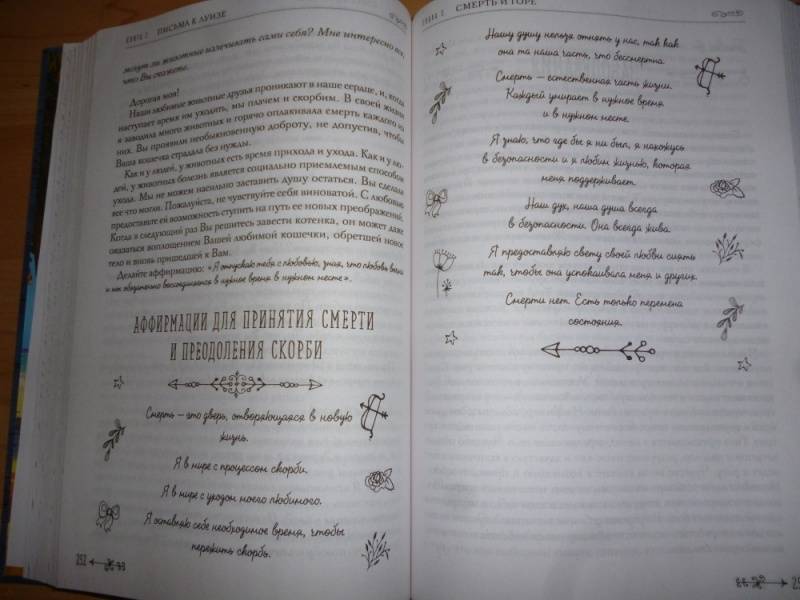 КНИГА 2. ПИСЬМА К ЛУИЗЕ
могут ли животные излечивать сами себя? Мне интересно все,
что Вы скажете.
Дорогая моя!
Наши любимые животные друзья проникают в наше сердце, и, когда
наступает время им уходить, мы плачем и скорбим. В своей жизни
я заводила много животных и горячо оплакивала смерть каждого из
них. Вы проявили необыкновенную доброту, не допустив, чтобы
Ваша кошечка страдала без нужды.
Как и у людей, у животных есть время прихода и ухода. Как и у лю-
дей, у животных болезнь является социально приемлемым способом
ухода. Мы не можем насильно заставить душу остаться. Вы сделали
все что могли. Пожалуйста, не чувствуйте себя виноватой. С любовью
предоставьте ей возможность ступить на путь ее новых преображений.
Когда в следующий раз Вы решитесь завести котенка, он может даже
оказаться воплощением Вашей любимой кошечки, обретшей новое
тело и вновь пришедшей к Вам.
Делайте аффирмацию: «Я отпускаю тебя с любовью, зная, что любовь
и мы обязательно воссоединимся в нужное время в нужном месте».
АФФИРМАЦИИ ДЛЯ ПРИНЯТИЯ СМЕРТИ
И ПРЕОДОЛЕНИЯ СКОРБИ
Смерть — это дверь, отворяющаяся в новую
жизнь.
Я в мире с процессом скорби.
Я в мире с уходом моего любимого.
Я оставляю себе необходимое время, чтобы
пережить скорбь.
252
СМЕРТЬ И ГОРЕ
Нашу душу нельзя отнять у нас, так как
она та наша часть, что бессмертна.
Смерть — естественная часть жизни.
Каждый умирает в нужное время
и в нужном месте.
Я знаю, что где бы я ни был, я нахожусь
в безопасности и я любим жизнью, которая
меня поддерживает.
Наш дух, наша душа всегда
в безопасности. Она всегда жива.
Я предоставляю свету своей любви сиять
так, чтобы она успокаивала меня и других.
Смерти нет. Есть только перемена
состояния.